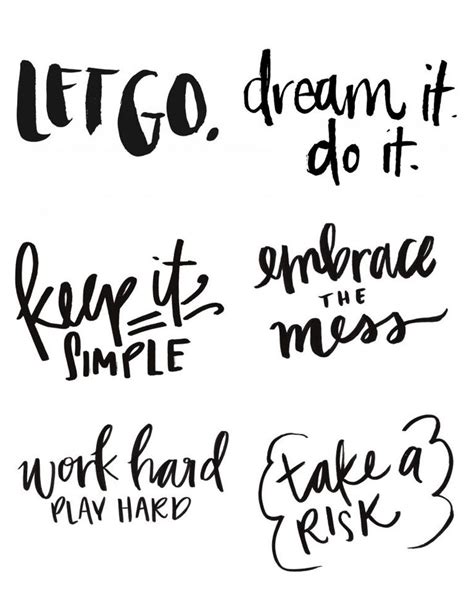 LET GO.
dream it.
do it.
keep it
SIMPLE
embrace
THE
mess
work hard
PLAY HARD
take a
RISK